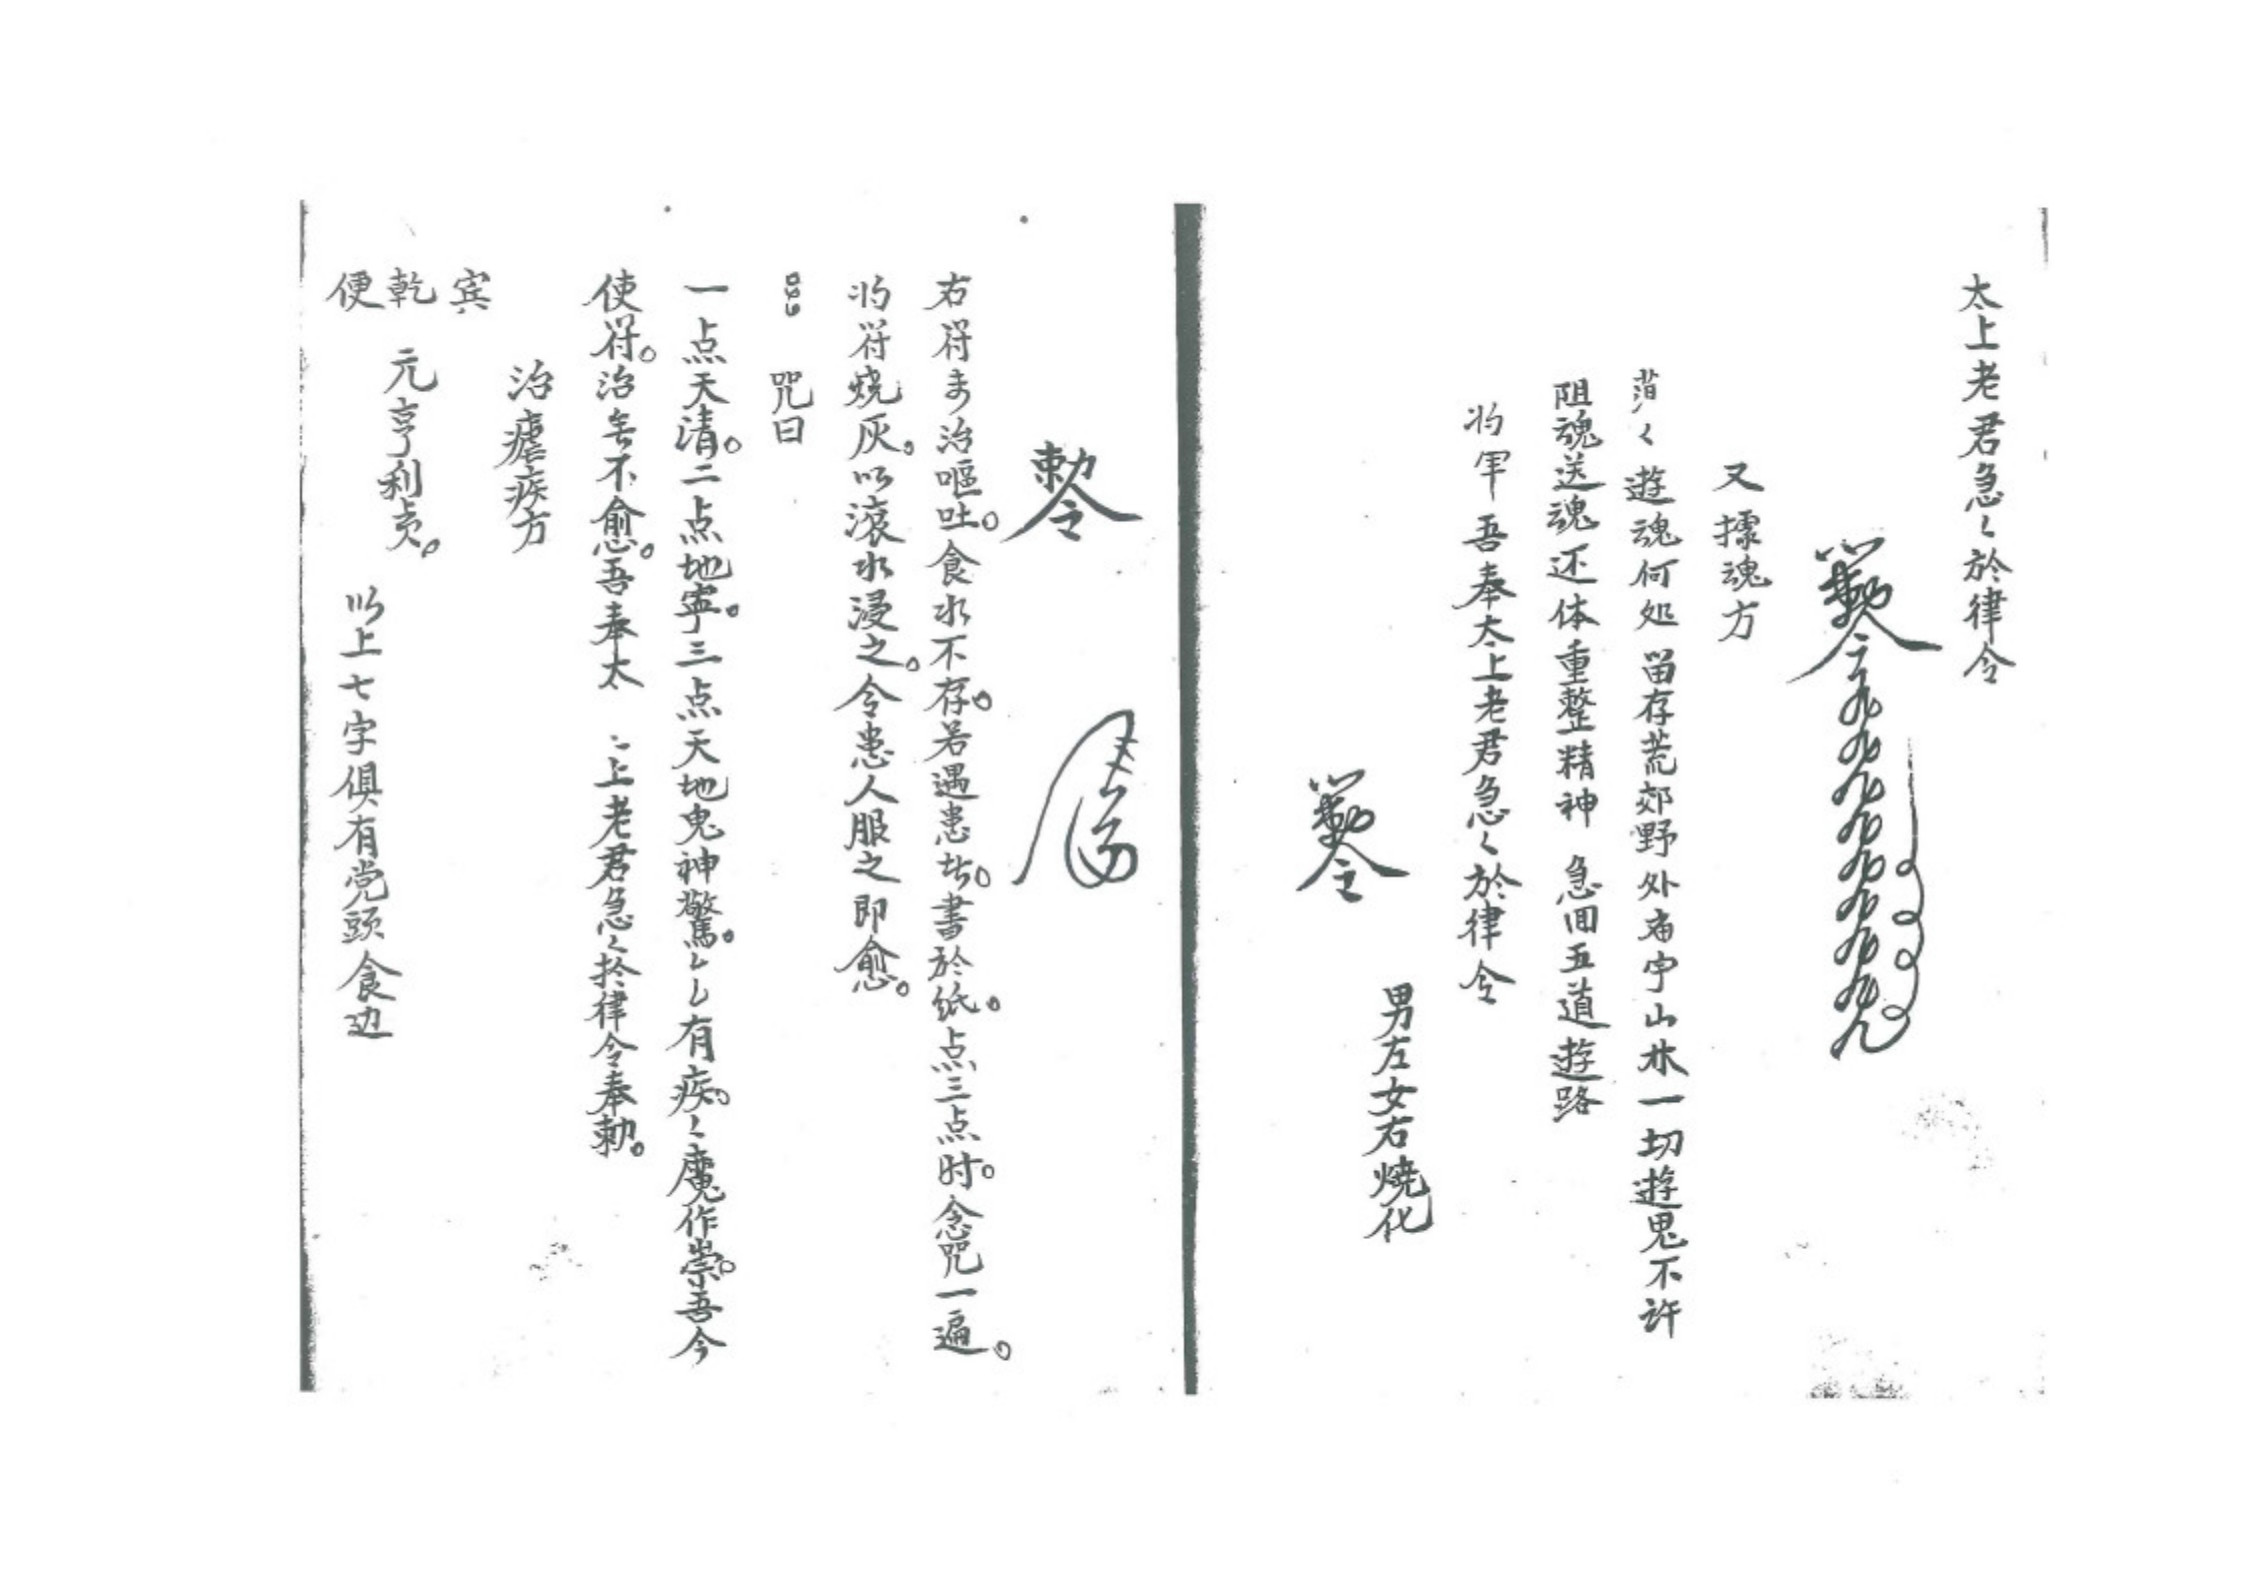 太上老君急〻於律令
勅令
又攄魂方
〻遊魂何処留存荒郊野外庙宇山林一切遊鬼不許
阻魂送魂还体重整精神 急回五道遊路
将军 吾奉太上老君急〻於律令
勅令
男左女右燒化
勅令
右符专治嘔吐。食水不存。若遇患者。書於纸。点三点时。念咒一遍。
将符烧灰。以滚水浸之。令患人服之即愈。
咒曰
一点天清。二点地寧。三点天地鬼神驚。〻〻有疾。〻魔作祟。吾今
使符。治无不愈。吾奉太〻上老君急〻於律令奉勅。
治瘧疾方
宾
乾 元亨利贞。
便 以上七字俱有党頭食边